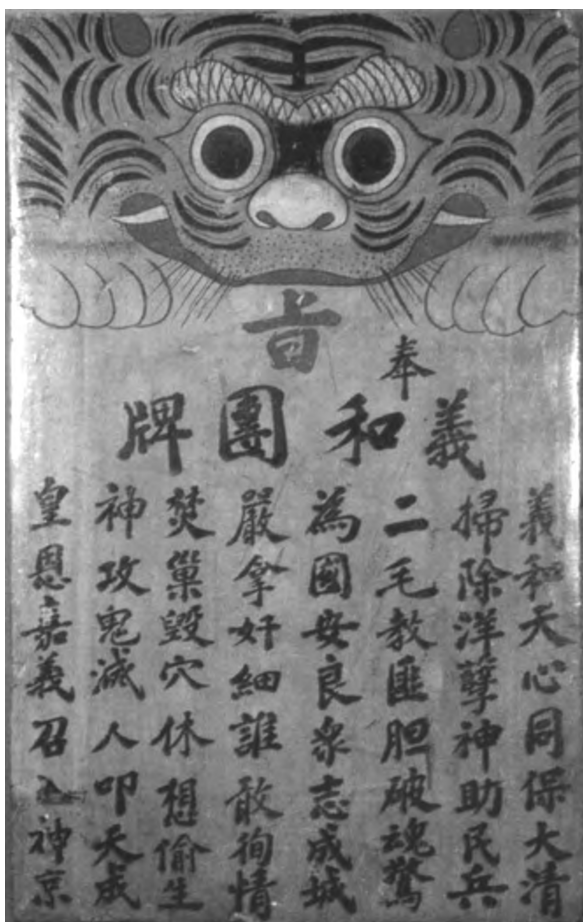 奉
旨
義和團牌
義和天心同保大清
掃除洋孽神助民兵
二毛教匪胆破魂驚
為國安良衆志成城
嚴拿奸細誰敢徇情
焚巢毀穴休想偷生
神攻鬼滅人叩天成
皇恩嘉義召神京